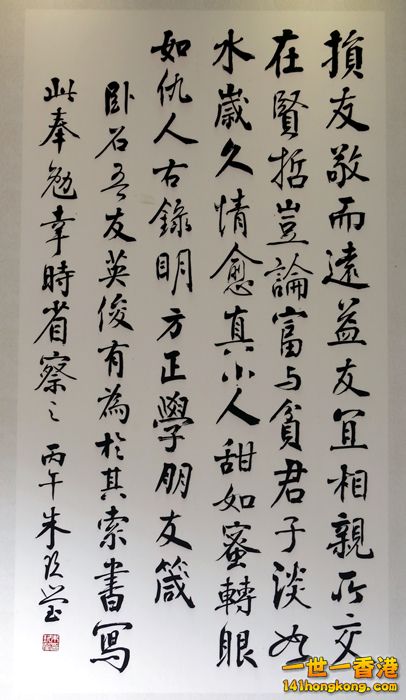 損友敬而遠益友宜相親所交
在賢哲豈論富与貧君子淡如
水歲久情愈真小人甜如蜜轉眼
如仇人右錄明方正學朋友箴
卧石吾友英俊有為於其索書寫
此奉勉幸時省察之 丙午朱玖瑩
一世一香港
141hongkong.com